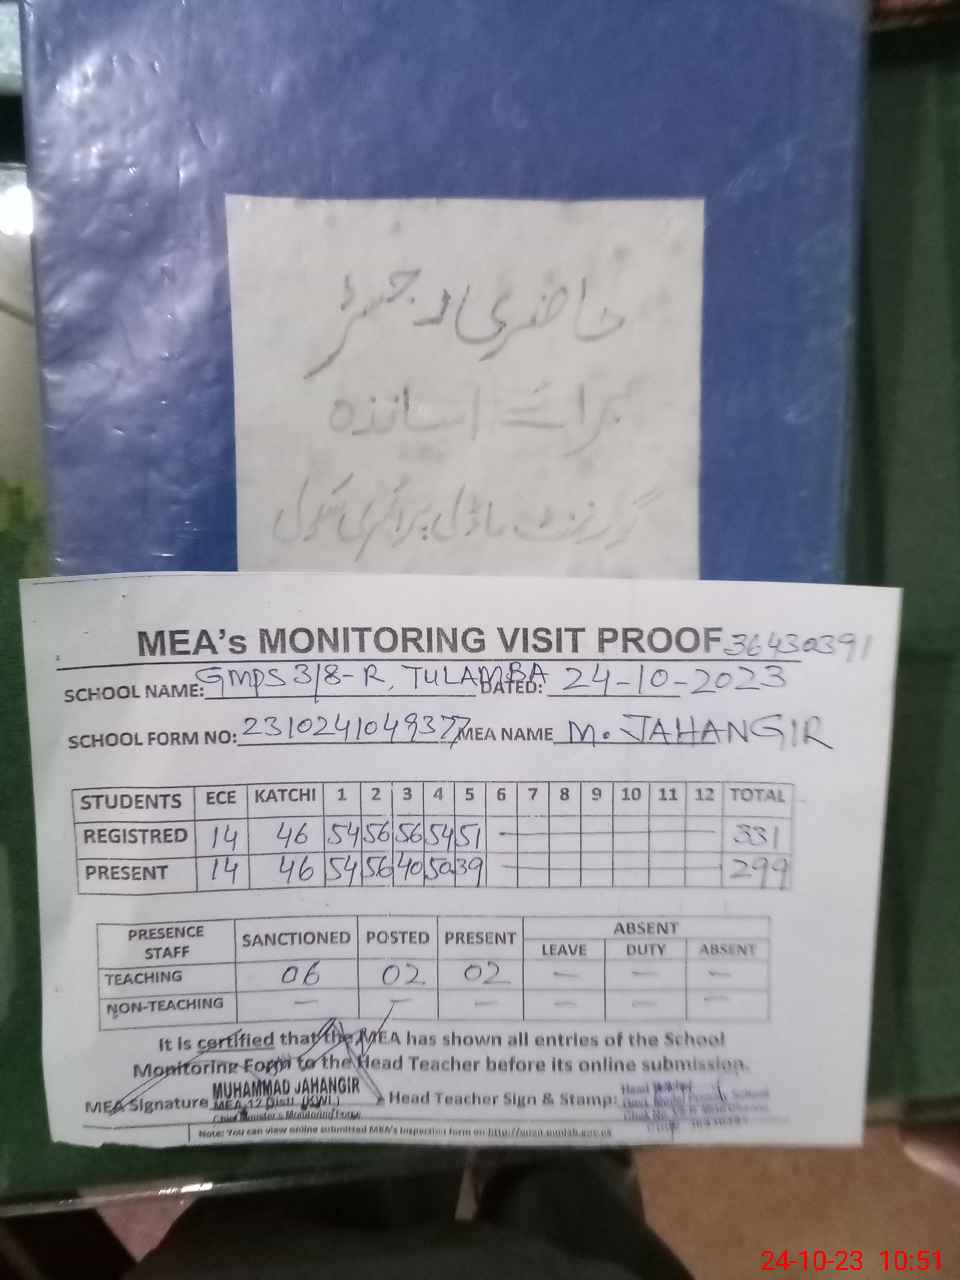 حاضری رجسٹر
برائے اساتذہ
گورنمنٹ ماڈل پرائمری سکول
MEA's MONITORING VISIT PROOF 36430391
SCHOOL NAME: GMPS 3/8-R, TULAMBA DATED: 24-10-2023
SCHOOL FORM NO: 2310241049377 MEA NAME M. JAHANGIR
STUDENTS ECE KATCHI 1 2 3 4 5 6 7 8 9 10 11 12 TOTAL
REGISTRED 14 46 54 56 56 54 51 — 331
PRESENT 14 46 54 56 40 50 39 — 299
PRESENCE STAFF SANCTIONED POSTED PRESENT ABSENT
LEAVE DUTY ABSENT
TEACHING 06 02 02 — — —
NON-TEACHING — — — — — —
It is certified that the MEA has shown all entries of the School
Monitoring Form to the Head Teacher before its online submission.
MEA Signature MUHAMMAD JAHANGIR Head Teacher Sign & Stamp: Head School
MEA-12 Distt. (KWL)
Chief Minister's Monitoring Force
Note: You can view online submitted MEA's inspection form on-http://
24-10-23 10:51